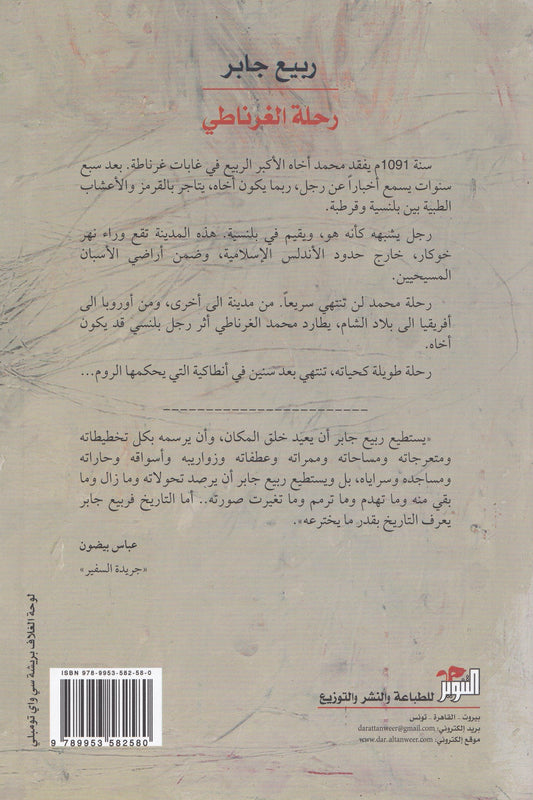 ربيع جابر
رحلة الغرناطي
سنة 1091م يفقد محمد أخاه الأكبر الربيع في غابات غرناطة. بعد سبع
سنوات يسمع أخباراً عن رجل، ربما يكون أخاه، يتاجر بالقرمز والأعشاب
الطبية بين بلنسية وقرطبة.
رجل يشبهه كأنه هو، ويقيم في بلنسية. هذه المدينة تقع وراء نهر
خوكار، خارج حدود الأندلس الإسلامية، وضمن أراضي الأسبان
المسيحيين.
رحلة محمد لن تنتهي سريعاً. من مدينة الى أخرى، ومن أوروبا الى
أفريقيا الى بلاد الشام، يطارد محمد الغرناطي أثر رجل بلنسي قد يكون
أخاه.
رحلة طويلة كحياته، تنتهي بعد سنين في أنطاكية التي يحكمها الروم...
«يستطيع ربيع جابر أن يعيد خلق المكان، وأن يرسمه بكل تخطيطاته
ومتعرجاته ومساحاته وممراته وعطفاته وزواريبه وأسواقه وحاراته
ومساجده وسراياه، بل ويستطيع ربيع جابر أن يرصد تحولاته وما زال وما
بقي منه وما تهدم وما ترمم وما تغيرت صورته.. أما التاريخ فربيع جابر
يعرف التاريخ بقدر ما يخترعه».
عباس بيضون
«جريدة السفير»
لوحة الغلاف بريشة سي واي تومبلي
ISBN 978-9953-582-58-0
9 789953 582580
التنوير للطباعة والنشر والتوزيع
بيروت - القاهرة - تونس
بريد إلكتروني: darattanweer@gmail.com
موقع إلكتروني: www.dar.altanweer.com